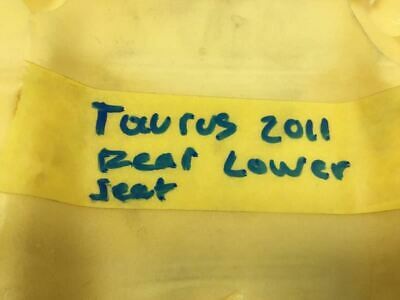 Taurus 2011
Rear Lower
Seat